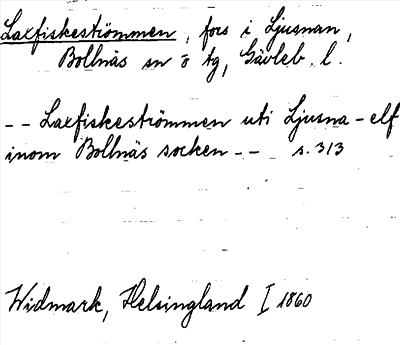 Laxfiskeströmmen, fors i Ljusnan,
Bollnäs sn o tg, Gävleb. l.
-- Laxfiskeströmmen uti Ljusna-elf
inom Bollnäs socken -- s. 313
Widmark, Helsingland I 1860